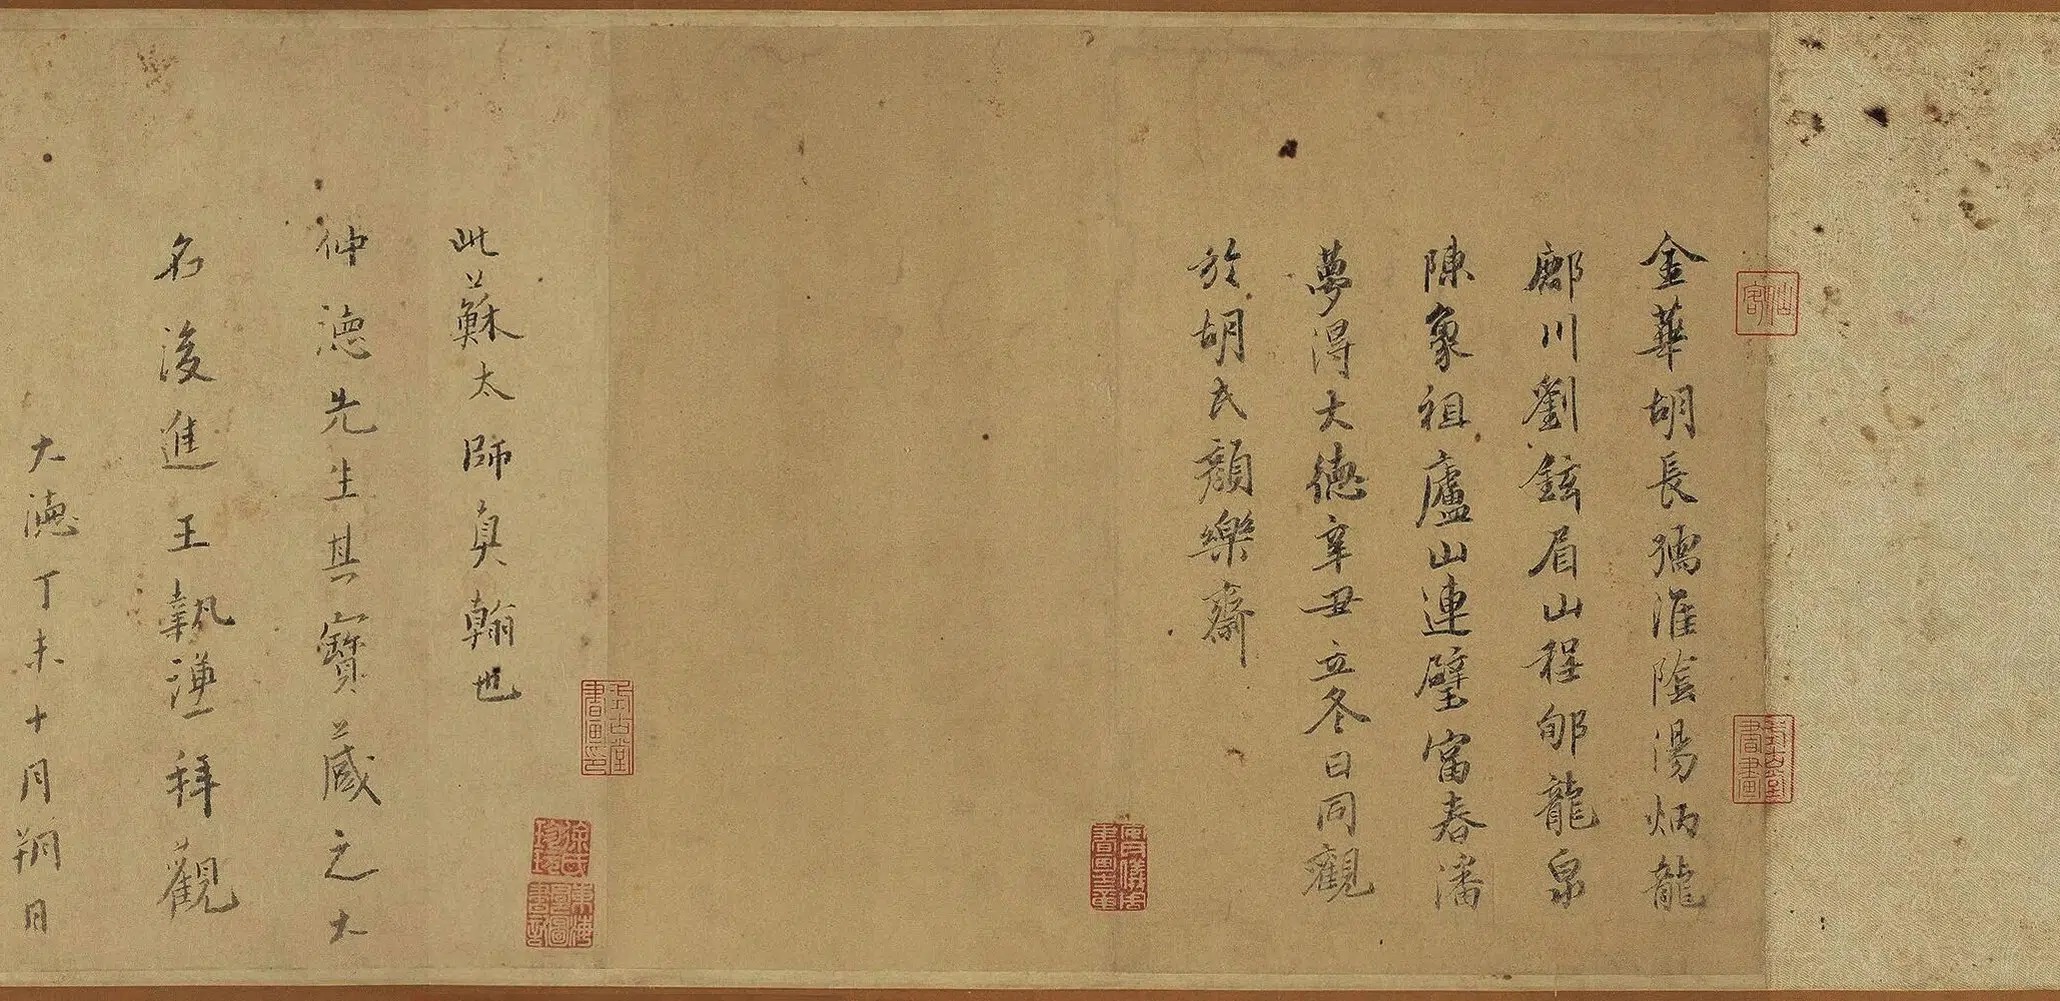 金華胡長孺淮陰湯炳龍
鄜川劉鉉眉山程郇龍泉
陳象祖廬山連璧富春潘
夢得大德辛丑立冬日同觀
於胡氏顏樂齋
此蘇太師真翰也
仲德先生其寶藏之大
名後進王執謙拜觀
大德丁未十月朔日